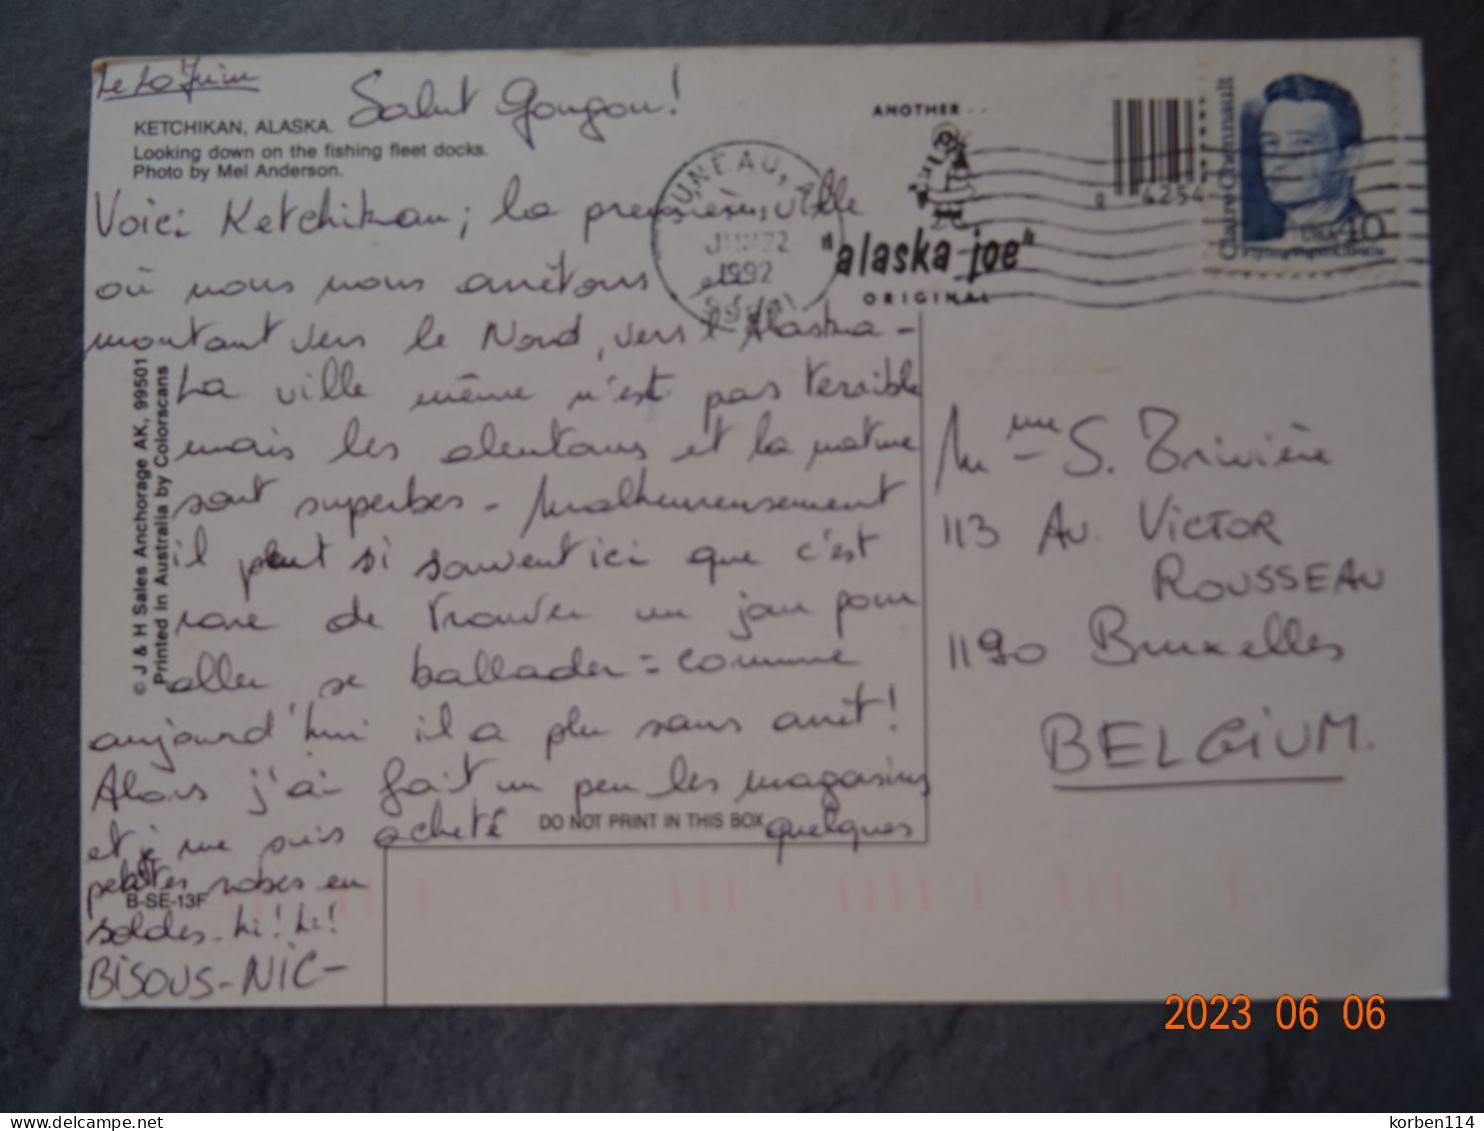 Le 20 Juin
Salut Gougou!
KETCHIKAN, ALASKA.
Looking down on the fishing fleet docks.
Photo by Mel Anderson.
Voici Ketchikan; la première ville
où nous nous arrêtons en
montant vers le Nord, vers l'Alaska -
La ville même n'est pas terrible
mais les alentours et la nature
sont superbes - Malheureusement
il pleut si souvent ici que c'est
rare de trouver un jour pour
aller se ballader = comme
aujourd'hui il a plu sans arrêt!
Alors j'ai fait un peu les magasins
et je me suis acheté quelques
petites robes en
soldes - hi! hi!
BISOUS - NIC -
© J & H Sales Anchorage AK, 99501
Printed in Australia by Colorscans
DO NOT PRINT IN THIS BOX
B-SE-13F
JUNEAU,
JUN 22
1992
ANOTHER . .
"alaska joe"
ORIGINAL
Claire Chennault
USA 40
Mme S. Trivière
113 Av. VICTOR
ROUSSEAU
1190 Bruxelles
BELGIUM.
2023 06 06
delcampe.net
korben114